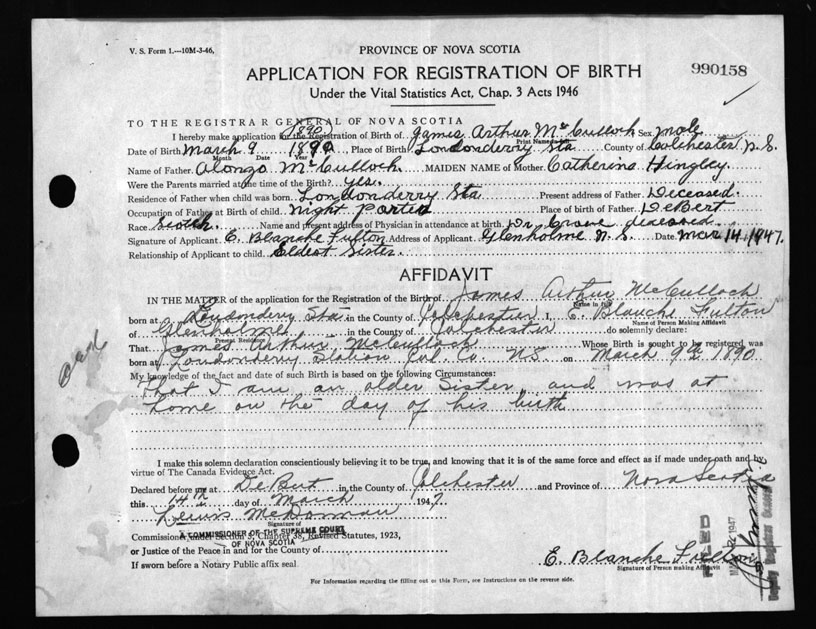 V. S. Form 1.—10M-3-46,
PROVINCE OF NOVA SCOTIA
APPLICATION FOR REGISTRATION OF BIRTH
990158
Under the Vital Statistics Act, Chap. 3 Acts 1946
TO THE REGISTRAR GENERAL OF NOVA SCOTIA
(1890)
I hereby make application for the Registration of Birth of James Arthur McCulloch Sex male
Print Name in full
Date of Birth March 9 1890 Place of Birth Londonderry Sta County of Colchester N.S.
Month Date Year
Name of Father Alonzo McCulloch MAIDEN NAME of Mother Catherine Hingley
Were the Parents married at the time of the Birth? yes.
Residence of Father when child was born Londonderry Sta Present address of Father Deceased.
Occupation of Father at Birth of child Night Porter Place of birth of Father DeBert
Race Scotch. Name and present address of Physician in attendance at birth Dr. deceased
Signature of Applicant E. Blanche Fulton Address of Applicant Glenholme N. S. Date Mar 14, 1947.
Relationship of Applicant to child Eldest Sister
AFFIDAVIT
IN THE MATTER of the application for the Registration of the Birth of James Arthur McCulloch
Name in full
born at Londonderry Sta. in the County of Colchester I, E. Blanche Fulton
Name of Person Making Affidavit
of Glenholme in the County of Colchester do solemnly declare:
Present Residence
That James Arthur McCulloch Whose Birth is sought to be registered was
born at Londonderry Station Col. Co. N.S. on March 9th 1890
My knowledge of the fact and date of such Birth is based on the following Circumstances:
That I am an older Sister and was at
home on the day of his birth
I make this solemn declaration conscientiously believing it to be true, and knowing that it is of the same force and effect as if made under oath and by
virtue of The Canada Evidence Act.
Declared before me at DeBert in the County of Colchester and Province of Nova Scotia
this 14th day of March 1947
Lewis McDorman
Signature of
A COMMISSIONER OF THE SUPREME COURT
OF NOVA SCOTIA
Commissioner under Section 3, Chapter 38, Revised Statutes, 1923,
or Justice of the Peace in and for the County of
If sworn before a Notary Public affix seal
E. Blanche Fulton
Signature of Person making Affidavit
FILED
1947
For Information regarding the filling out of this Form, see Instructions on the reverse side.